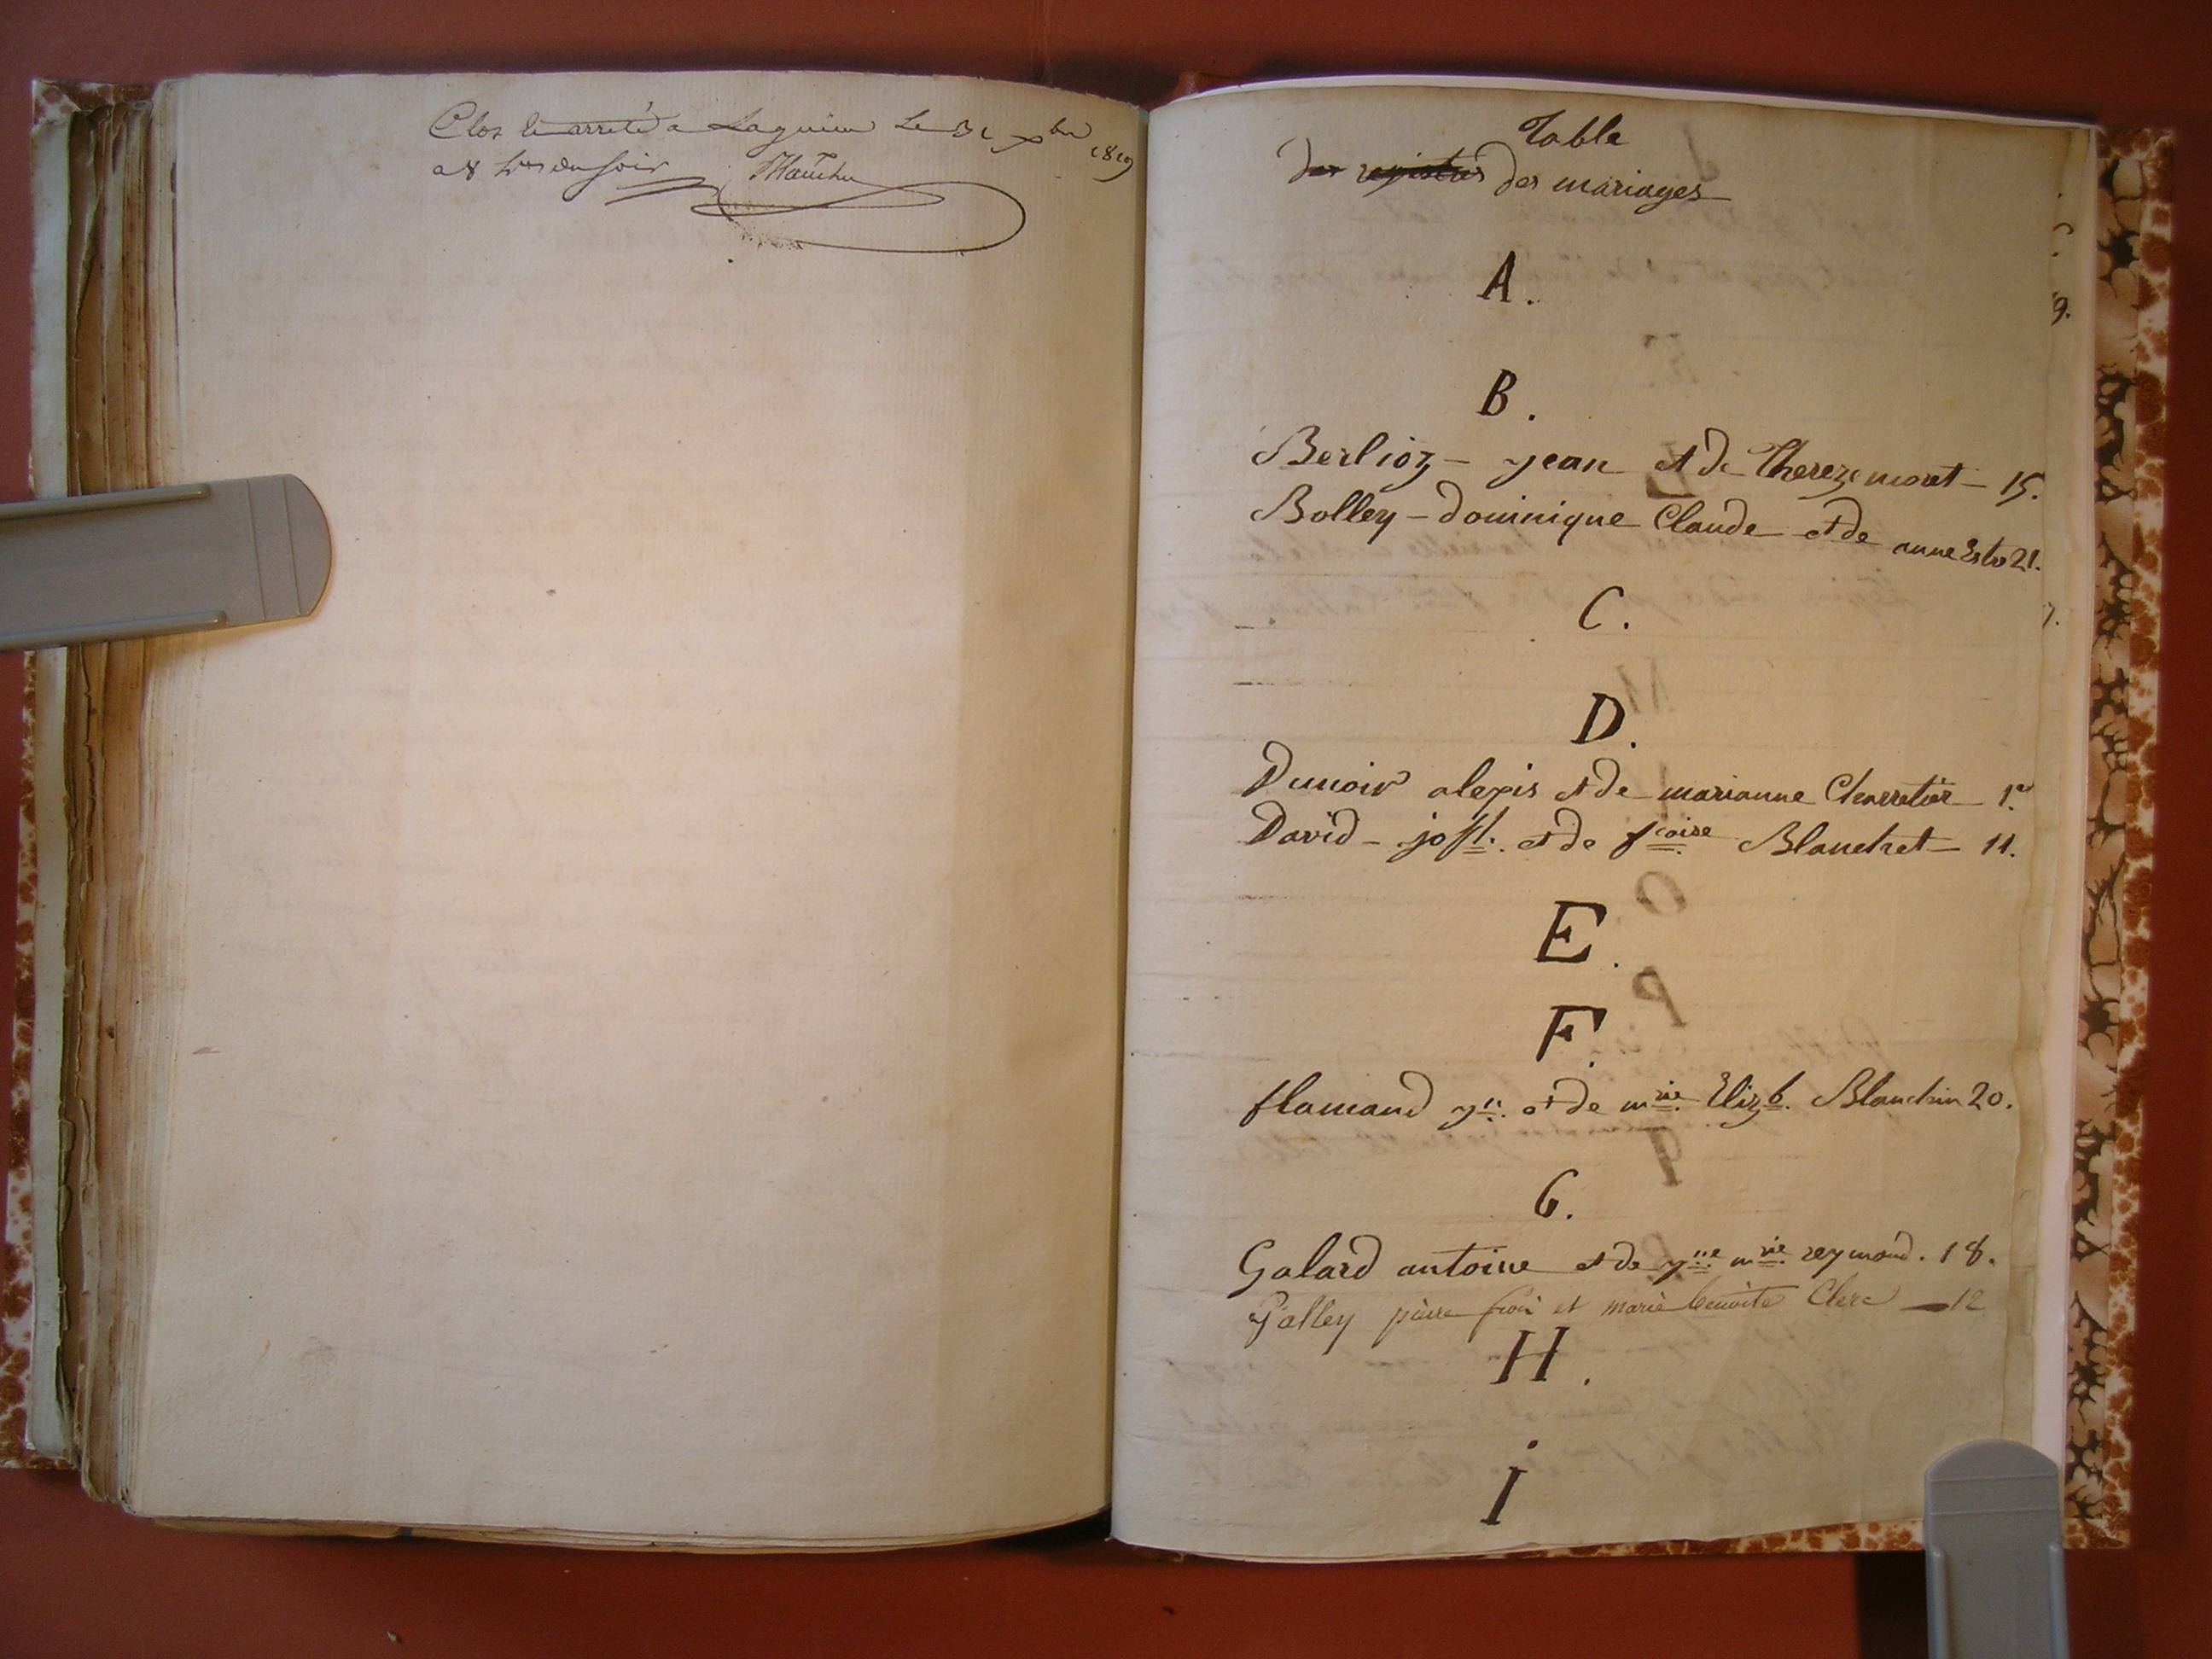 Clos et arreté a Lagnieu Le 31 xbre 1819
a 8 hres du soir
Table
des registres des mariages
A.
B.
Berlioz - jean et de Thereze moret - 15.
Bolley - dominique Claude et de anne 21.
C.
D.
Dunoir alexis et de marianne Charretier 1er
David - joph. et de fcoise Blanchet - 11.
E.
F.
flamand jn. et de mrie. Elizb. Blanchin 20.
G.
Galard antoine et de jne mrie reymond. 18.
Galley pierre frois et marie benoite Clerc - 12
H.
I